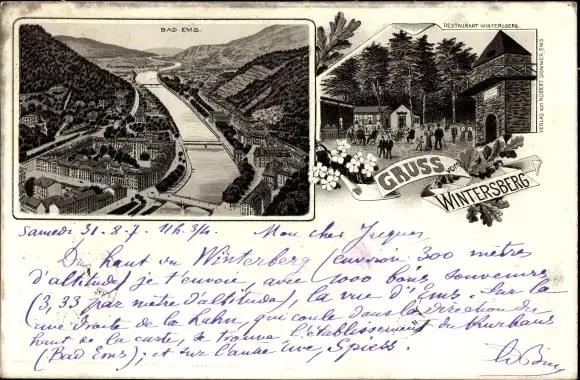 BAD EMS.
RESTAURANT WINTERSBERG.
VERLAG von ROBERT SOMMER, EMS
GRUSS vom
WINTERSBERG
Samedi 31-8-7. 11h 3/4. Mon cher Jacques
Du haut du Winterberg (environ 300 mètres
d'altitude) je t'envoie, avec 1000 bons souvenirs
(3,33 par mètre d'altitude), la vue d'Ems. Sur la
rive droite de la Lahn, qui coule dans la direction du
haut de la carte, se trouve l'établissement du Kurhaus
(Bad Ems); et sur l'autre rive, Spiess.